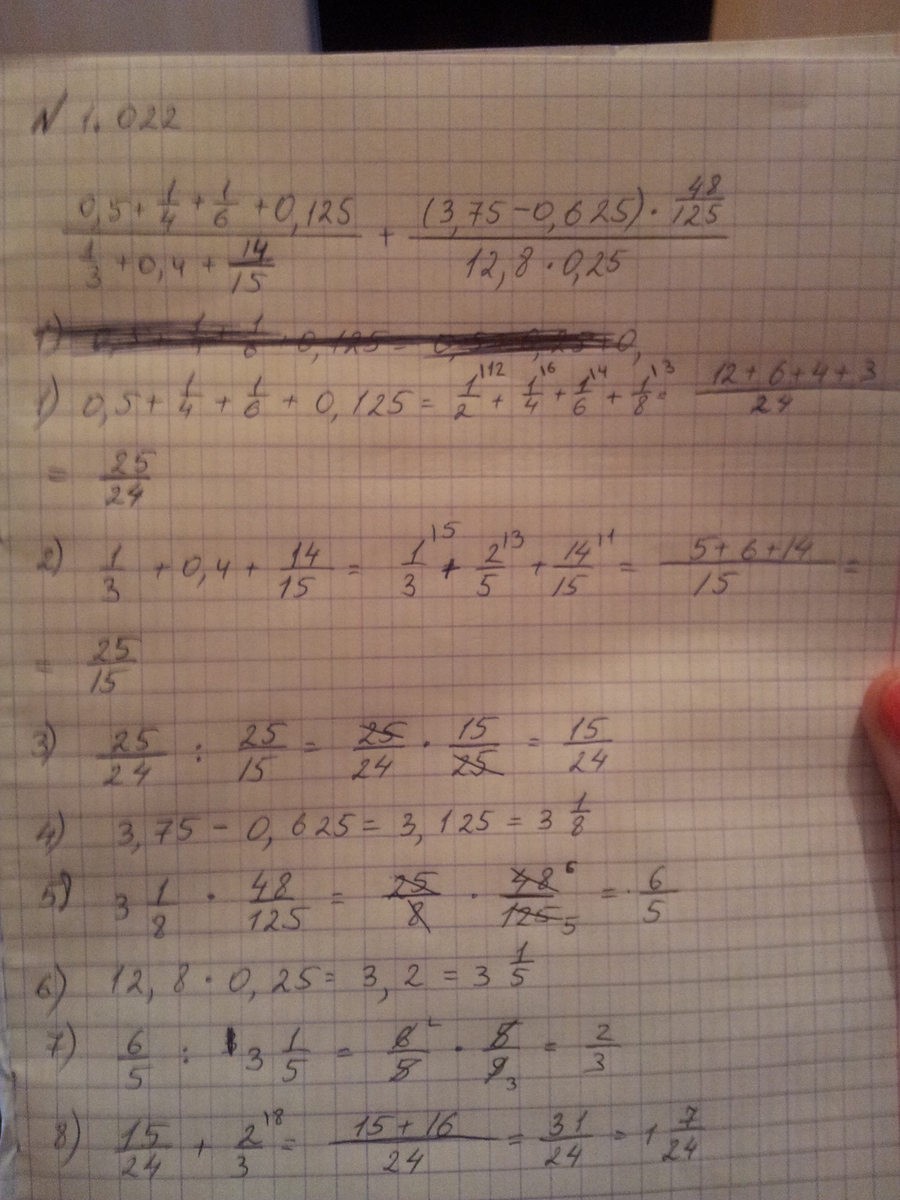 N 1.022
(0,5 + 1/4 + 1/6 + 0,125)/(1/3 + 0,4 + 14/15) + ((3,75 - 0,625) · 48/125)/(12,8 · 0,25)
1) 0,5 + 1/4 + 1/6 + 0,125 = 1/2 |12 + 1/4 |6 + 1/6 |4 + 1/8 |3 = (12 + 6 + 4 + 3)/24
= 25/24
2) 1/3 + 0,4 + 14/15 = 1/3 |5 + 2/5 |3 + 14/15 |1 = (5 + 6 + 14)/15 =
= 25/15
3) 25/24 : 25/15 = 25/24 · 15/25 = 15/24
4) 3,75 - 0,625 = 3,125 = 3 1/8
5) 3 1/8 · 48/125 = 25/8 · 48 6/125 5 = 6/5
6) 12,8 · 0,25 = 3,2 = 3 1/5
7) 6/5 : 3 1/5 = 6 2/5 · 5/9 3 = 2/3
8) 15/24 + 2/3 |8 = (15 + 16)/24 = 31/24 = 1 7/24